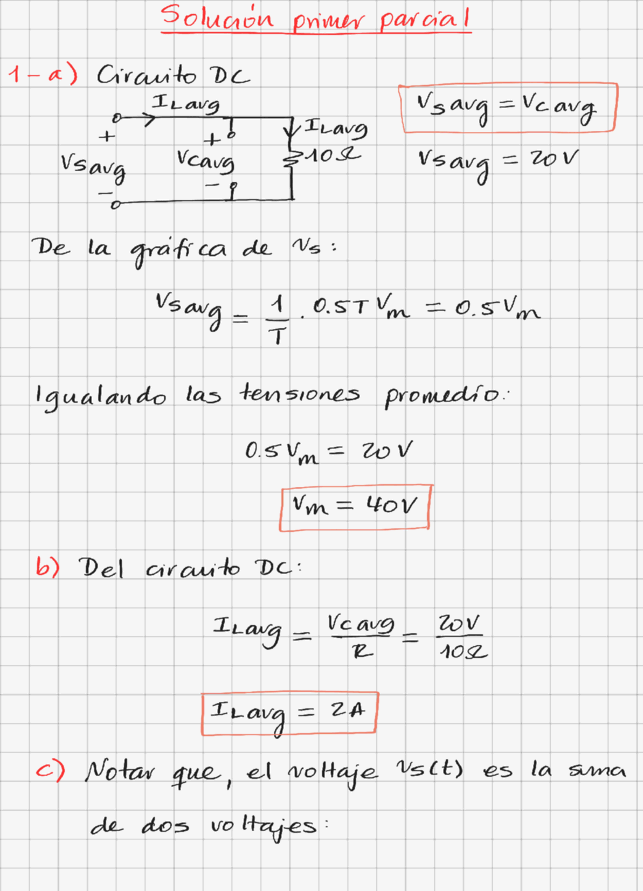 Solución primer parcial
1-a) Circuito DC
ILavg
Vsavg = Vcavg
+
+
ILavg
Vsavg
Vcavg
10Ω
Vsavg = 20V
-
-
De la gráfica de vs:
Vsavg = 1/T · 0.5T Vm = 0.5Vm
Igualando las tensiones promedio:
0.5Vm = 20V
Vm = 40V
b) Del circuito DC:
ILavg = Vcavg/R = 20V/10Ω
ILavg = 2A
c) Notar que, el voltaje vs(t) es la suma
de dos voltajes: